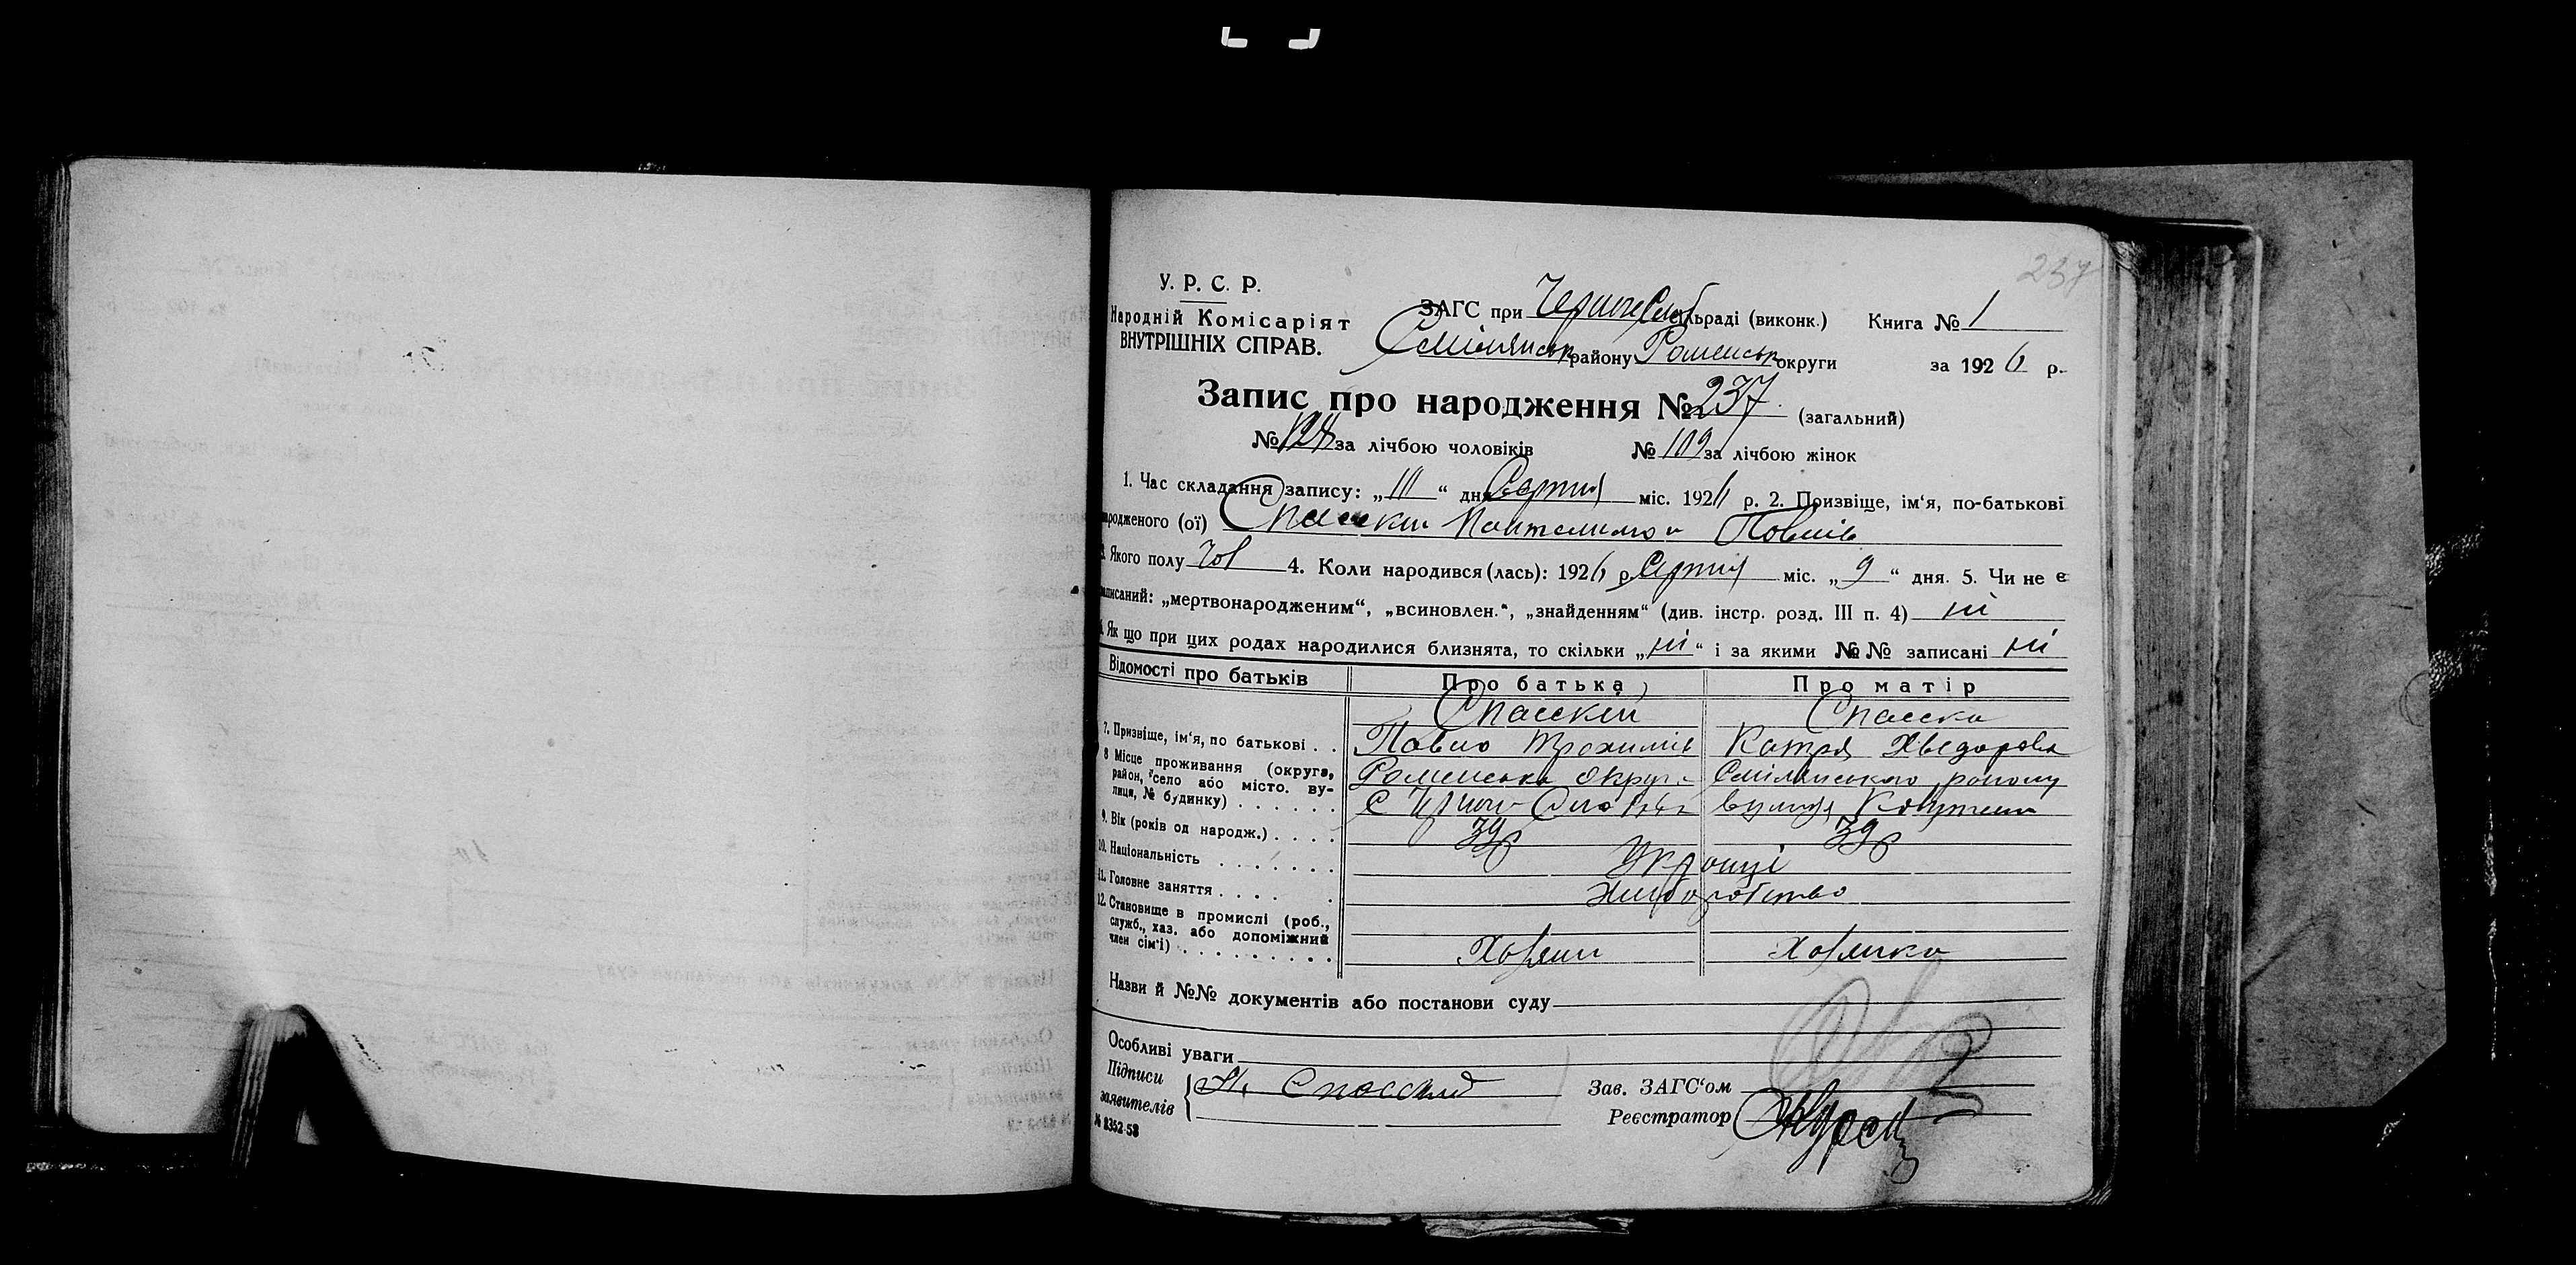 237
У. Р. С. Р.
Народній Комісаріят
ВНУТРІШНІХ СПРАВ.
ЗАГС при Чернечеслоб сільраді (виконк.) Книга № 1
Смілянськ району Роменськ округи за 1926 р.
Запис про народження № 237 (загальний)
№ 128 за лічбою чоловіків № 109 за лічбою жінок
1. Час складання запису: „ “ дня Серпня міс. 1926 р. 2. Призвіще, ім‘я, по-батькові
народженого (ої) Спасский Пантелимон Павлів
3. Якого полу чол 4. Коли народився (лась): 1926 р. Серпня міс. „9“ дня. 5. Чи не є
записаний: „мертвонародженим“, „всиновлен.“, „знайденням“ (див. інстр. розд. III п. 4) ні
6. Як що при цих родах народилися близнята, то скільки „ні“ і за якими №№ записані ні
Відомості про батьків Про батька Про матір
Спасский Спасска
7. Призвіще, ім‘я, по батькові . . Павло Трохимів Катря Хведорова
8 Місце проживання (округа, район, село або місто. вулиця, № будинку) . . . . . . Роменська округа Смілянського району
С Чернеча Слобідка вулиця
9. Вік (років од народж.) . . . . 39 р 39 р
10. Національність . . . . . . . Українці
11. Головне заняття . . . . . Хліборобство
12. Становище в промислі (роб., служб., хаз. або допоміжний член сім‘ї) . . . . . . . . . Хазяин Хазяйка
Назви й №№ документів або постанови суду
Особливі уваги
Підписи заявителів { П. Спасский
Зав. ЗАГС‘ом
Реєстратор
№ 8352-58